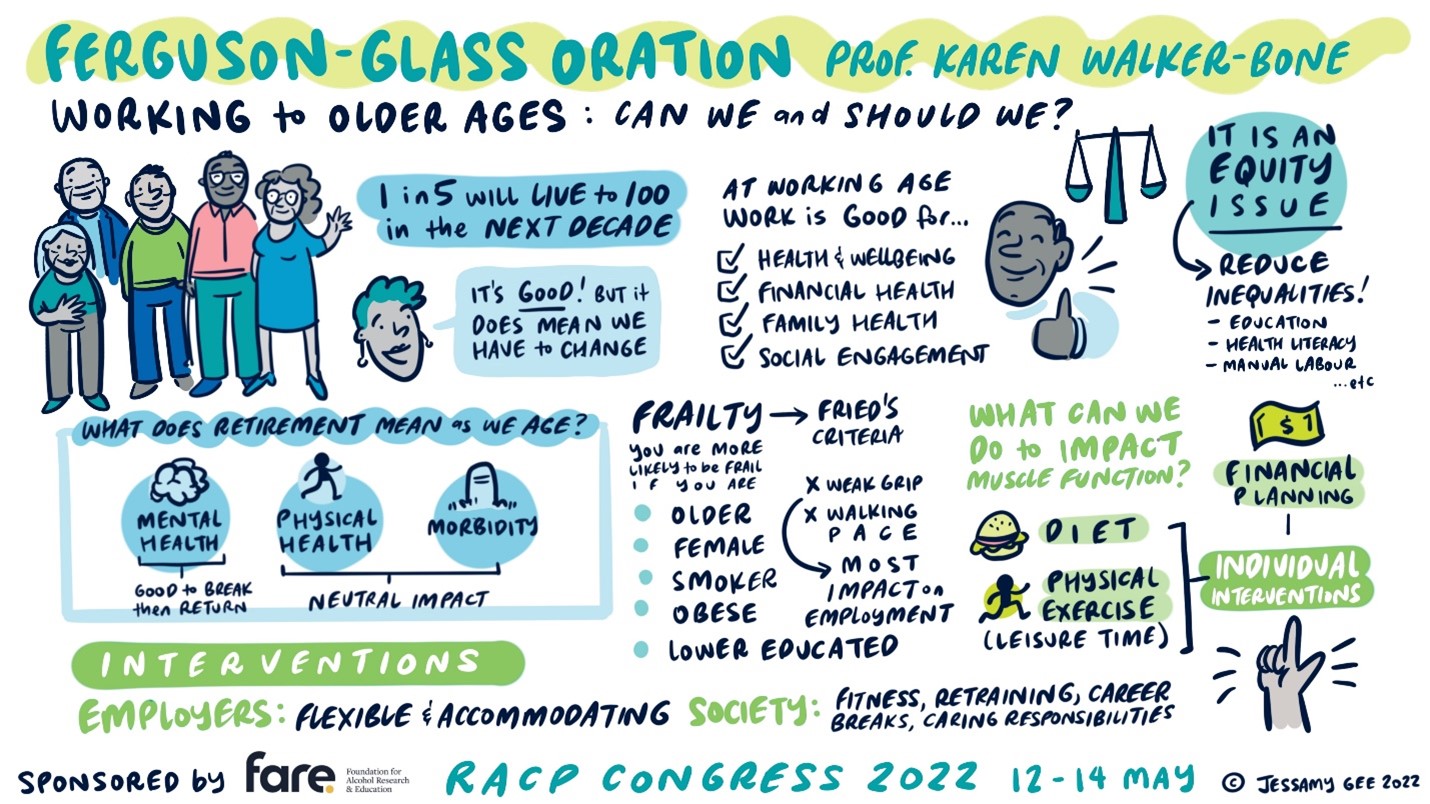 FERGUSON-GLASS ORATION PROF. KAREN WALKER-BONE
WORKING to OLDER AGES : CAN WE and SHOULD WE?
1 in 5 WILL LIVE to 100
in the NEXT DECADE
IT'S GOOD! BUT it
DOES MEAN WE
HAVE to CHANGE
AT WORKING AGE
WORK is GOOD for...
HEALTH & WELLBEING
FINANCIAL HEALTH
FAMILY HEALTH
SOCIAL ENGAGEMENT
IT IS AN
EQUITY
ISSUE
REDUCE
INEQUALITIES!
- EDUCATION
- HEALTH LITERACY
- MANUAL LABOUR
...etc
WHAT DOES RETIREMENT MEAN as WE AGE?
MENTAL
HEALTH
GOOD to BREAK
then RETURN
PHYSICAL
HEALTH
MORBIDITY
NEUTRAL IMPACT
FRAILTY → FRIED'S
CRITERIA
YOU are MORE
LIKELY to be FRAIL
IF YOU ARE
OLDER
FEMALE
SMOKER
OBESE
LOWER EDUCATED
X WEAK GRIP
X WALKING
PACE
MOST
IMPACT on
EMPLOYMENT
WHAT CAN WE
DO to IMPACT
MUSCLE FUNCTION?
DIET
PHYSICAL
EXERCISE
(LEISURE TIME)
$
FINANCIAL
PLANNING
INDIVIDUAL
INTERVENTIONS
INTERVENTIONS
EMPLOYERS: FLEXIBLE & ACCOMMODATING
SOCIETY: FITNESS, RETRAINING, CAREER
BREAKS, CARING RESPONSIBILITIES
SPONSORED by fare.
Foundation for
Alcohol Research
& Education
RACP CONGRESS 2022 12-14 MAY
© JESSAMY GEE 2022